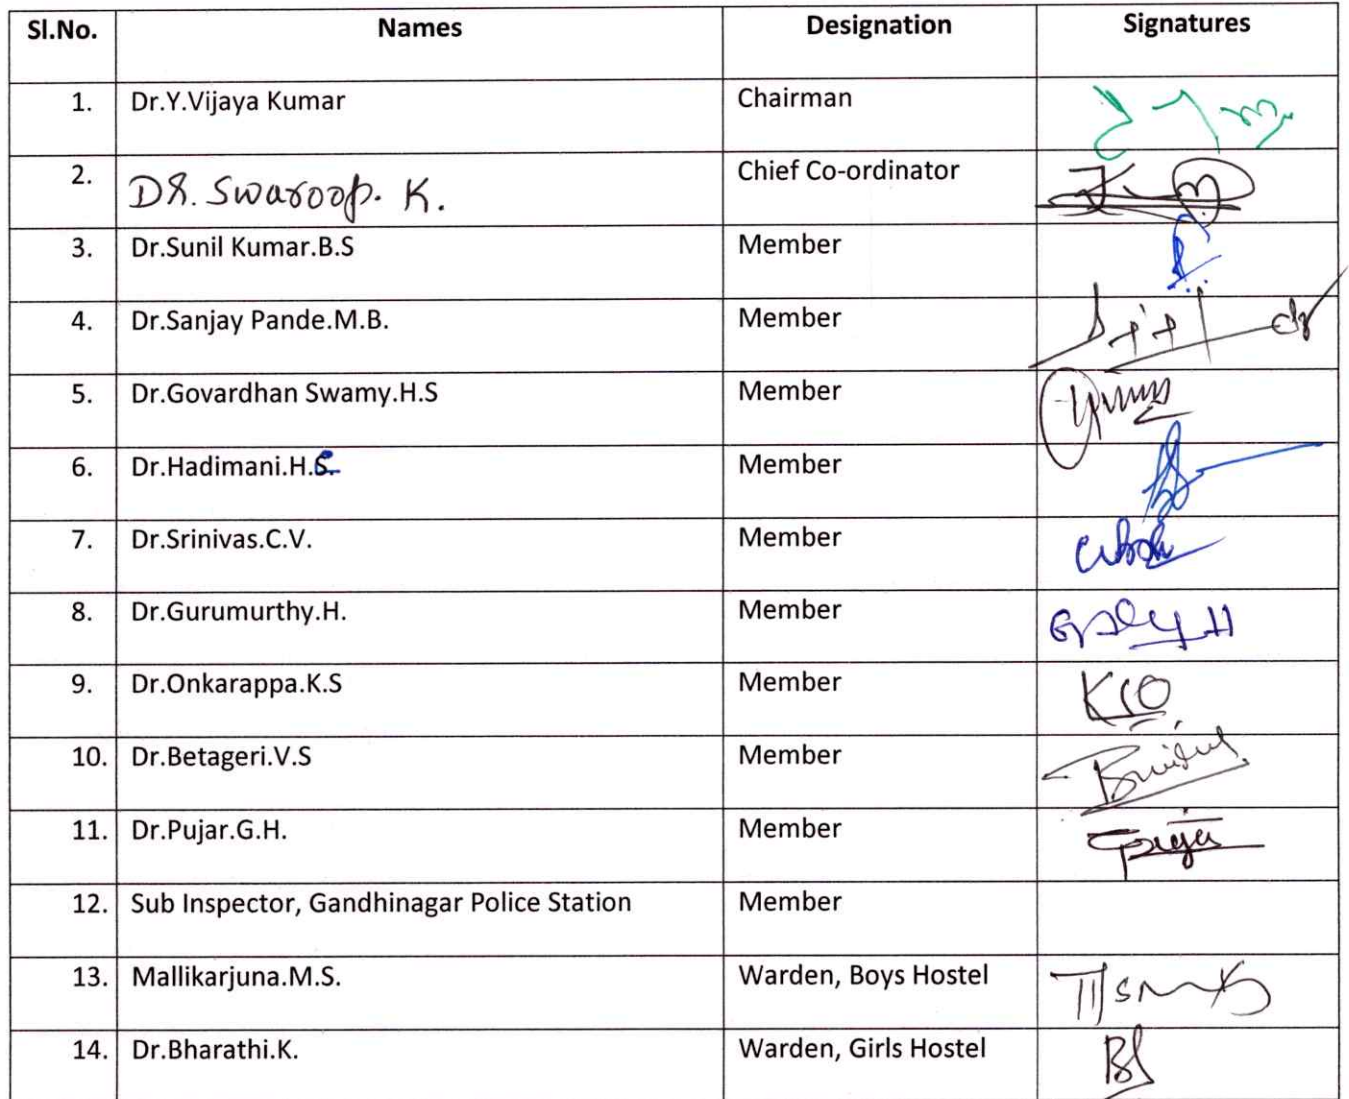 Sl.No. Names Designation Signatures
1. Dr.Y.Vijaya Kumar Chairman
2. Dr. Swaroop. K. Chief Co-ordinator
3. Dr.Sunil Kumar.B.S Member
4. Dr.Sanjay Pande.M.B. Member
5. Dr.Govardhan Swamy.H.S Member
6. Dr.Hadimani.H.S. Member
7. Dr.Srinivas.C.V. Member
8. Dr.Gurumurthy.H. Member
9. Dr.Onkarappa.K.S Member
10. Dr.Betageri.V.S Member
11. Dr.Pujar.G.H. Member
12. Sub Inspector, Gandhinagar Police Station Member
13. Mallikarjuna.M.S. Warden, Boys Hostel
14. Dr.Bharathi.K. Warden, Girls Hostel